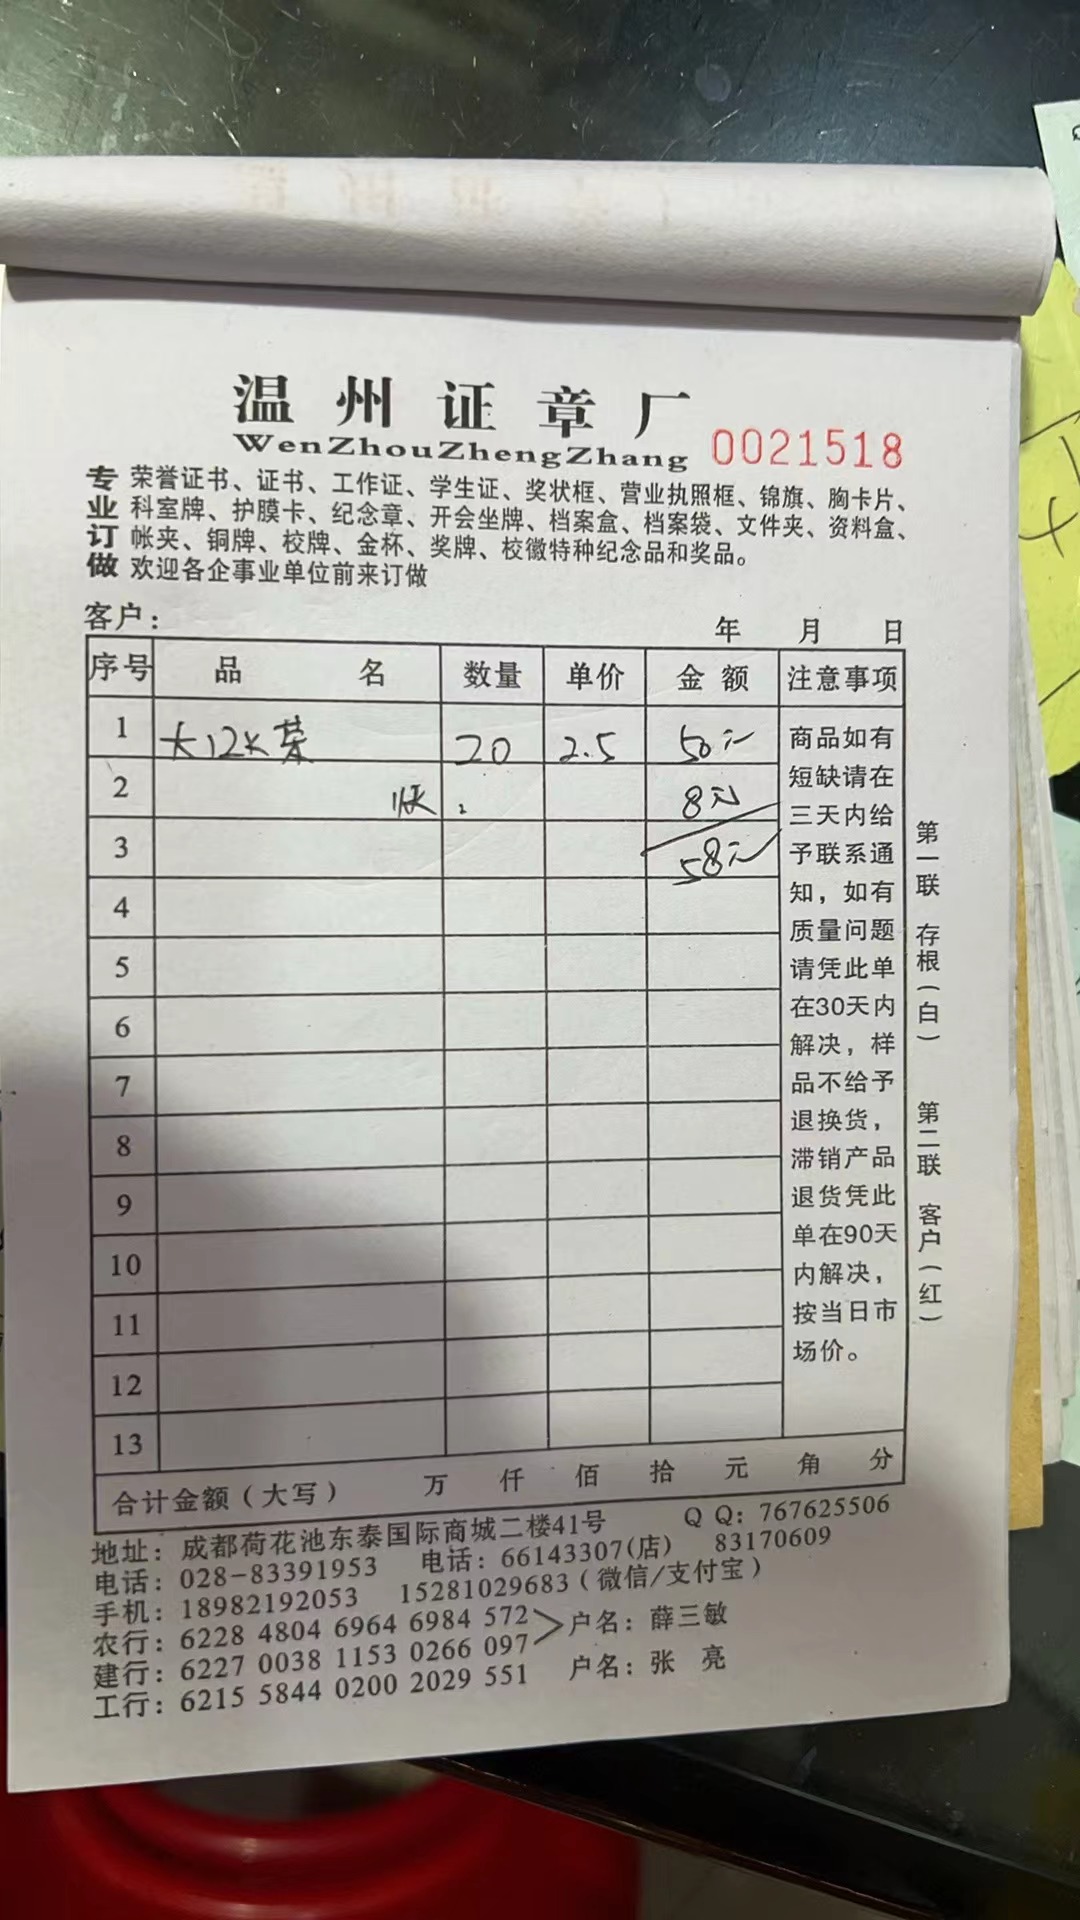 温州证章厂
WenZhouZhengZhang 0021518
专业订做
荣誉证书、证书、工作证、学生证、奖状框、营业执照框、锦旗、胸卡片、
科室牌、护膜卡、纪念章、开会坐牌、档案盒、档案袋、文件夹、资料盒、
帐夹、铜牌、校牌、金杯、奖牌、校徽特种纪念品和奖品。
欢迎各企事业单位前来订做
客户： 年 月 日
序号 品名 数量 单价 金额 注意事项
1 大12K荣 20 2.5 50元
2 8元
3 58元
4
5
6
7
8
9
10
11
12
13
商品如有
短缺请在
三天内给
予联系通
知，如有
质量问题
请凭此单
在30天内
解决，样
品不给予
退换货，
滞销产品
退货凭此
单在90天
内解决，
按当日市
场价。
第一联 存根(白) 第二联 客户(红)
合计金额(大写) 万 仟 佰 拾 元 角 分
地址：成都荷花池东泰国际商城二楼41号 QQ: 767625506
电话：028-83391953 电话：66143307(店) 83170609
手机：18982192053 15281029683(微信/支付宝)
农行：6228 4804 6964 6984 572
建行：6227 0038 1153 0266 097 户名：薛三敏
工行：6215 5844 0200 2029 551 户名：张 亮